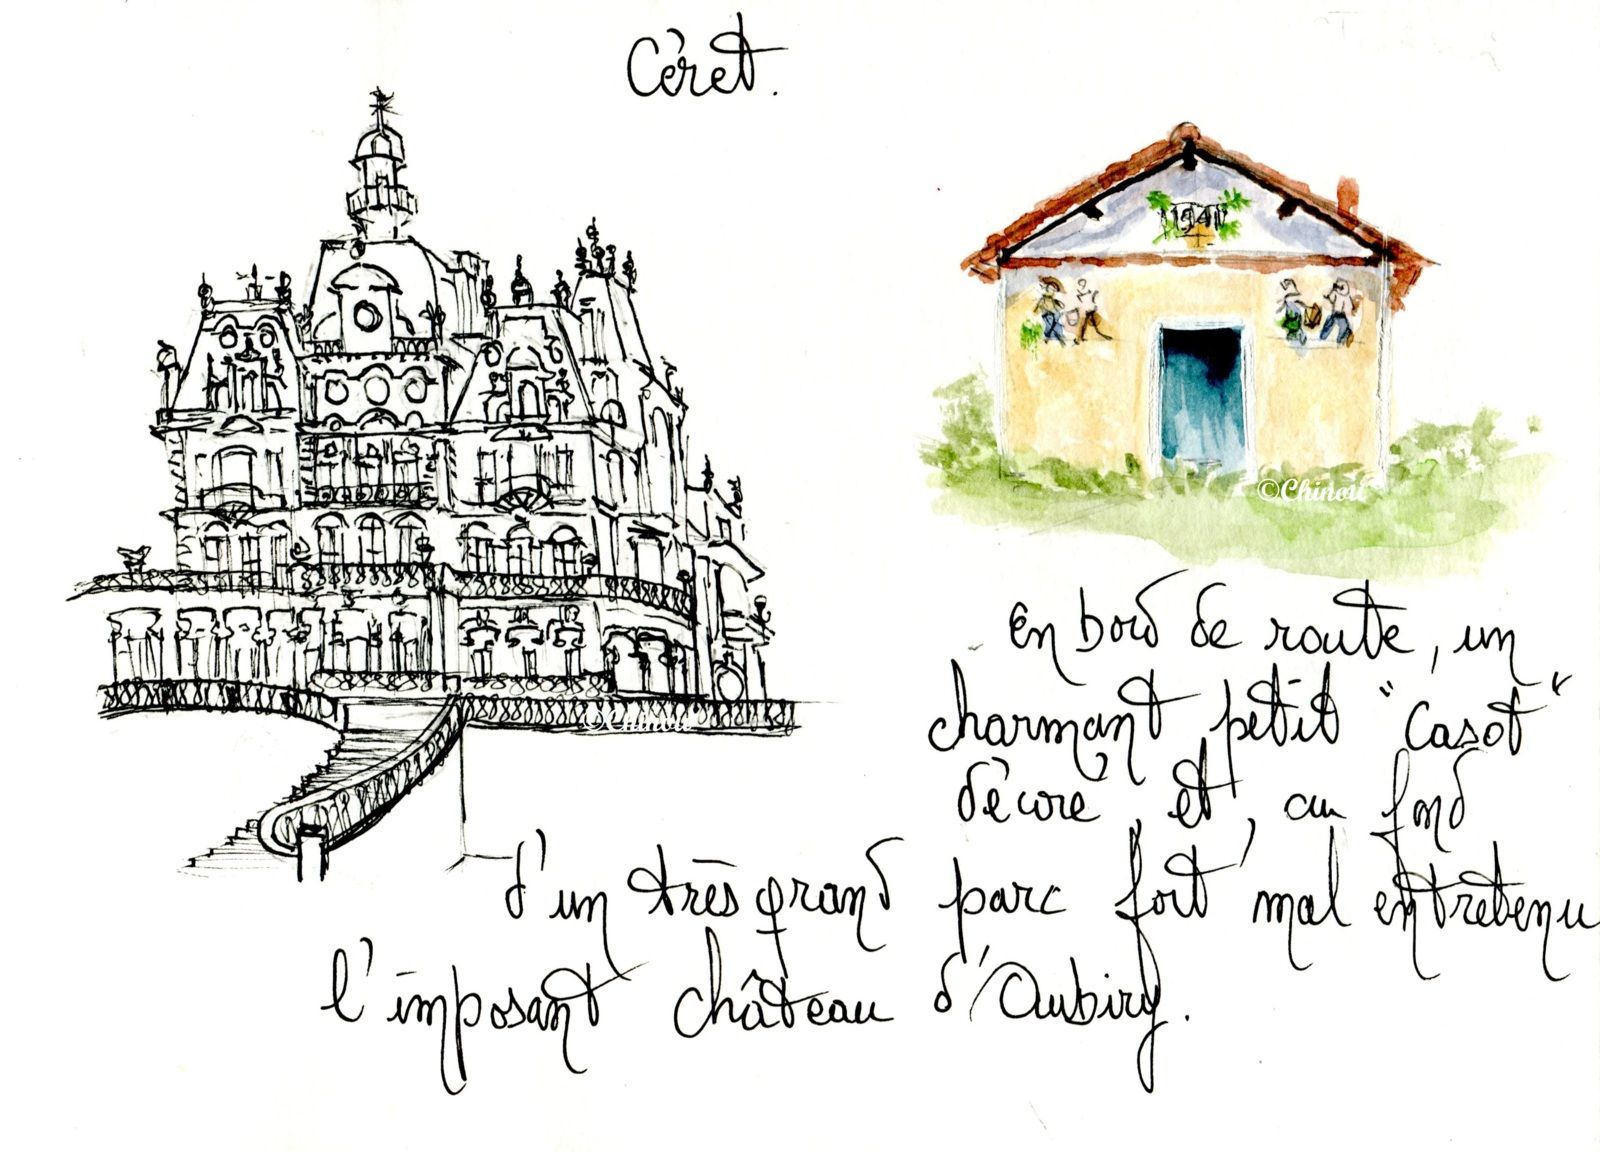 Céret.
1941
©Chinou
En bord de route, un
charmant petit "Casot"
décoré, et, au fond
©Chinou
d'un très grand parc fort mal entretenu
l'imposant château d'Aubiry.